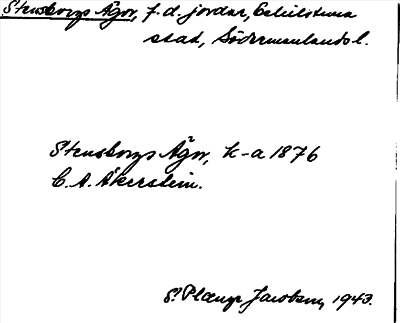 Stensborgs Ägor, f.d. jordar, Eskilstuna
stad, Södermanlands l.
Stensborgs Ägor, k-a 1876
C. A. Åkerstein.
S. Jacobson, 1943.